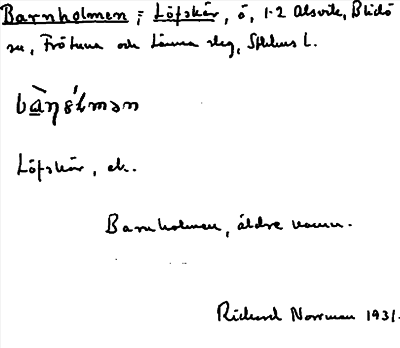 Barnholmen, = Löfskär, ö, 1-2 Alsvik, Blidö
sn, Fröluna och Länna slg, Sthlms l.
Löfskär, ek.
Barnholmen, äldre namn.
Richard Norrman 1931.